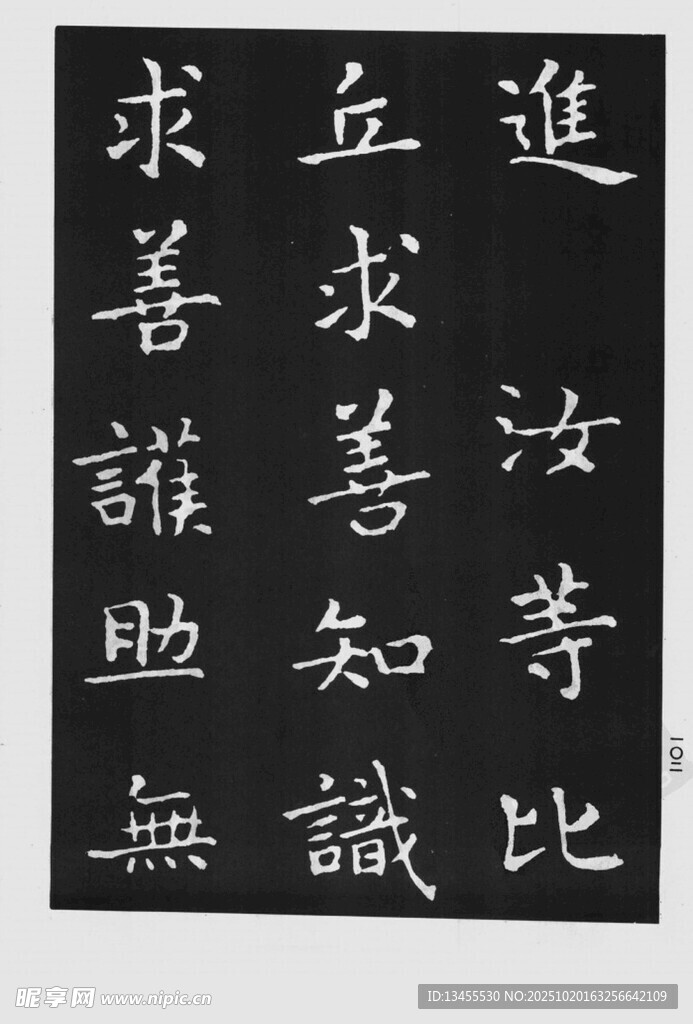 進 汝等比
丘求善知識
求善護助無
1101
昵享网 www.nipic.cn
ID:13455530 NO:20251020163256642109